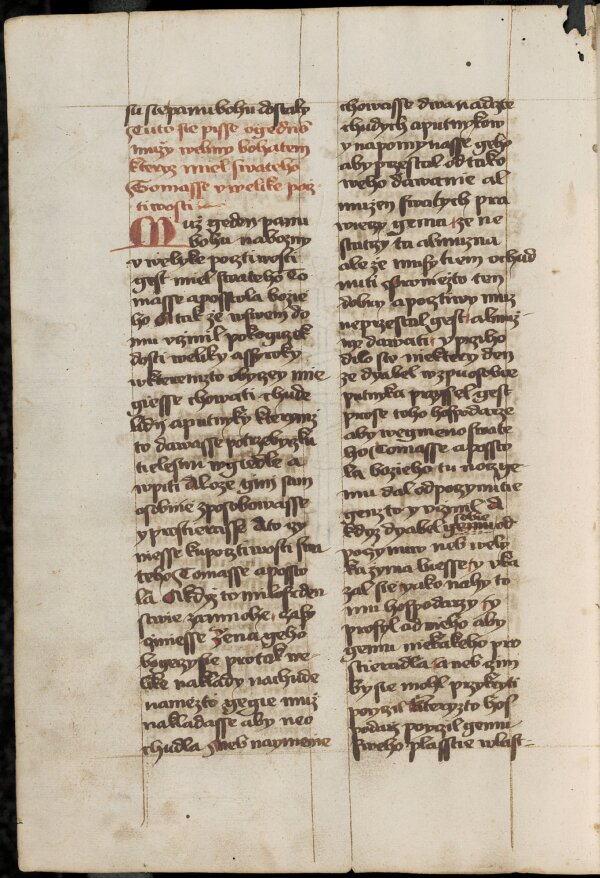 su se panu bohu dostaly
Tuto sie pisse o gednom
muzy welmy bohatem
kteryz miel swateho
Tomasse v welike pocz
tiwosti
Muz geden panu
bohu nabozny
v welyke pocztiwosti
gest miel swateho To
masse aposstola bozie
ho A tak ze w swem do
mu vczinil pokogiczek
dosti weliky a ssyroky
w kteremzto obyczey mie
giesse chowati chude
lidy a putnyky kterymz
to dawasse potrzebyczku
tielestnu w gidle a
w piti A loze gim sam
osobnie zposobowasse
y prostierasse A to czy
niesse ku pocztiwosti swa
teho Tomasse aposto
la A kdyz to milosrden
stwie za mnohe czasy
cziniesse Zena geho
bogeczy sie pro tak we
like naklady na chude
na niezto gegie muz
nakladasse aby neo
chudla A neb naymenie
chowasse dwanadczte
chudych a putnykow
y napomynasse geho
aby przestal od tako
weho dawanie al
muzen swatych pra
wiecz gemu ze ne
staczy ta almuzna
ale ze musy tiem ochud
nuti Prwniezto ten
dobry a pocztiwy muz
neprzestal gest almuz
ny dawati y prziho
dilo sie niektery den
ze dyabel w zpuosobie
putnika przyssel gest
prose toho hospodarze
aby we gmeno swate
ho Tomasse aposto
la bozieho tu noczye
mu dal odpoczynutie
genz to y vczinil A
kdyz dyabel gemu od
poczynuty neb wely
ka zyma biesse y vka
zal sie yako nahy to
mu hospodarzy y
prosyl od nieho aby
gemu niekakeho pro
stieradla a neb czim
by sie mohl przykryti
poyczil kteryzto hos
podarz poyczil gemu
sweho plasstie wlast-